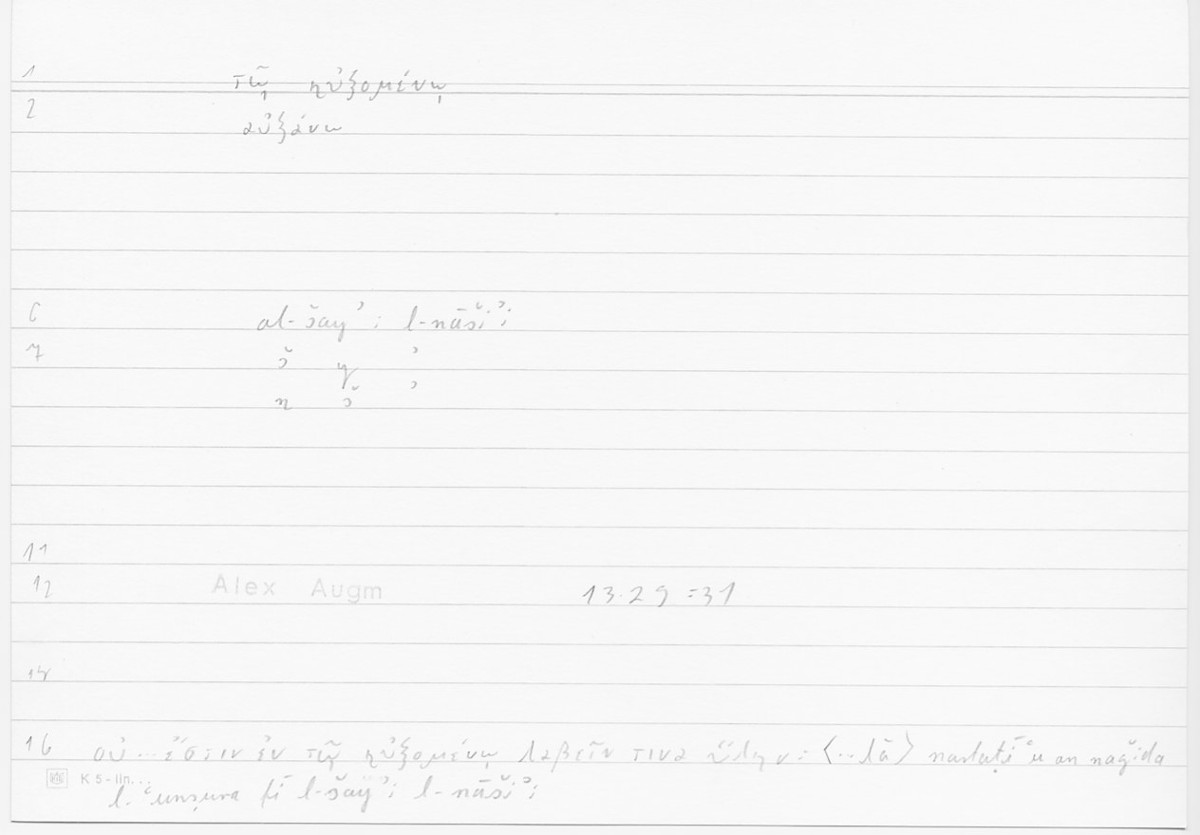 1 τῷ ηὐξομένῳ
2 αὐξάνω
6 al-šayʾi l-nāšiʾi
7 š y ʾ
n š ʾ
11
12 Alex Augm 13.29 = 31
14
16 οὐ ... ἔστιν ἐν τῷ ηὐξομένῳ λαβεῖν τινα ὕλην : ⟨..lā⟩ nastaṭīʿu an naǧida
K 5 - lin...
l-ʿunṣura fī l-šayʾi l-nāšiʾi